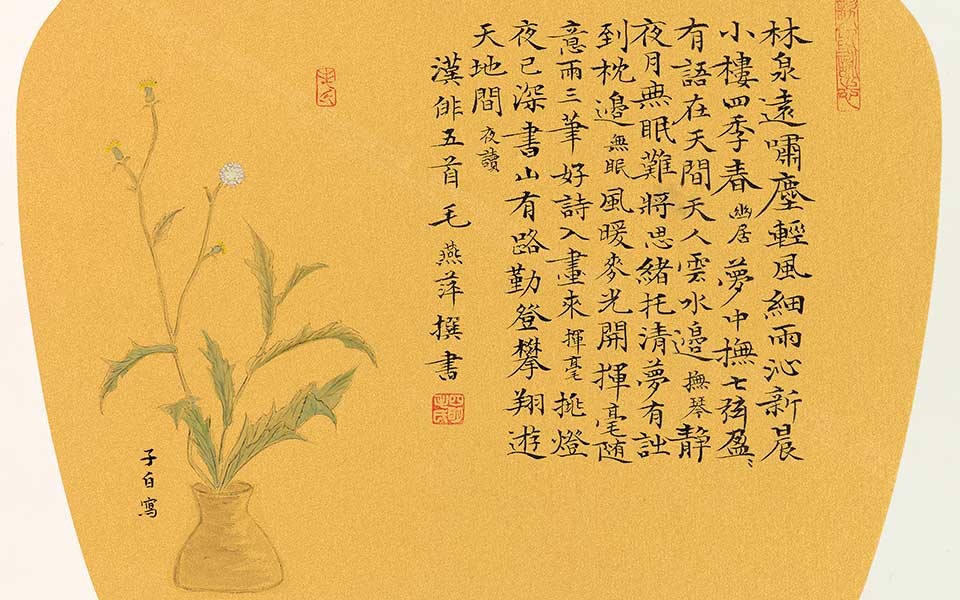 林泉遠嘯塵輕風細雨沁新晨
小樓四季春 幽居 夢中撫七弦盈〻
有語在天間天人雲水邊 撫琴 靜
夜月無眠難將思緒托清夢有詘
到枕邊 無眠 風暖麥光開揮毫随
意兩三筆好詩入畫來 揮毫 挑燈
夜已深書山有路勤登攀翔遊
天地間 夜讀
漢俳五首 毛燕萍撰書
子白寫